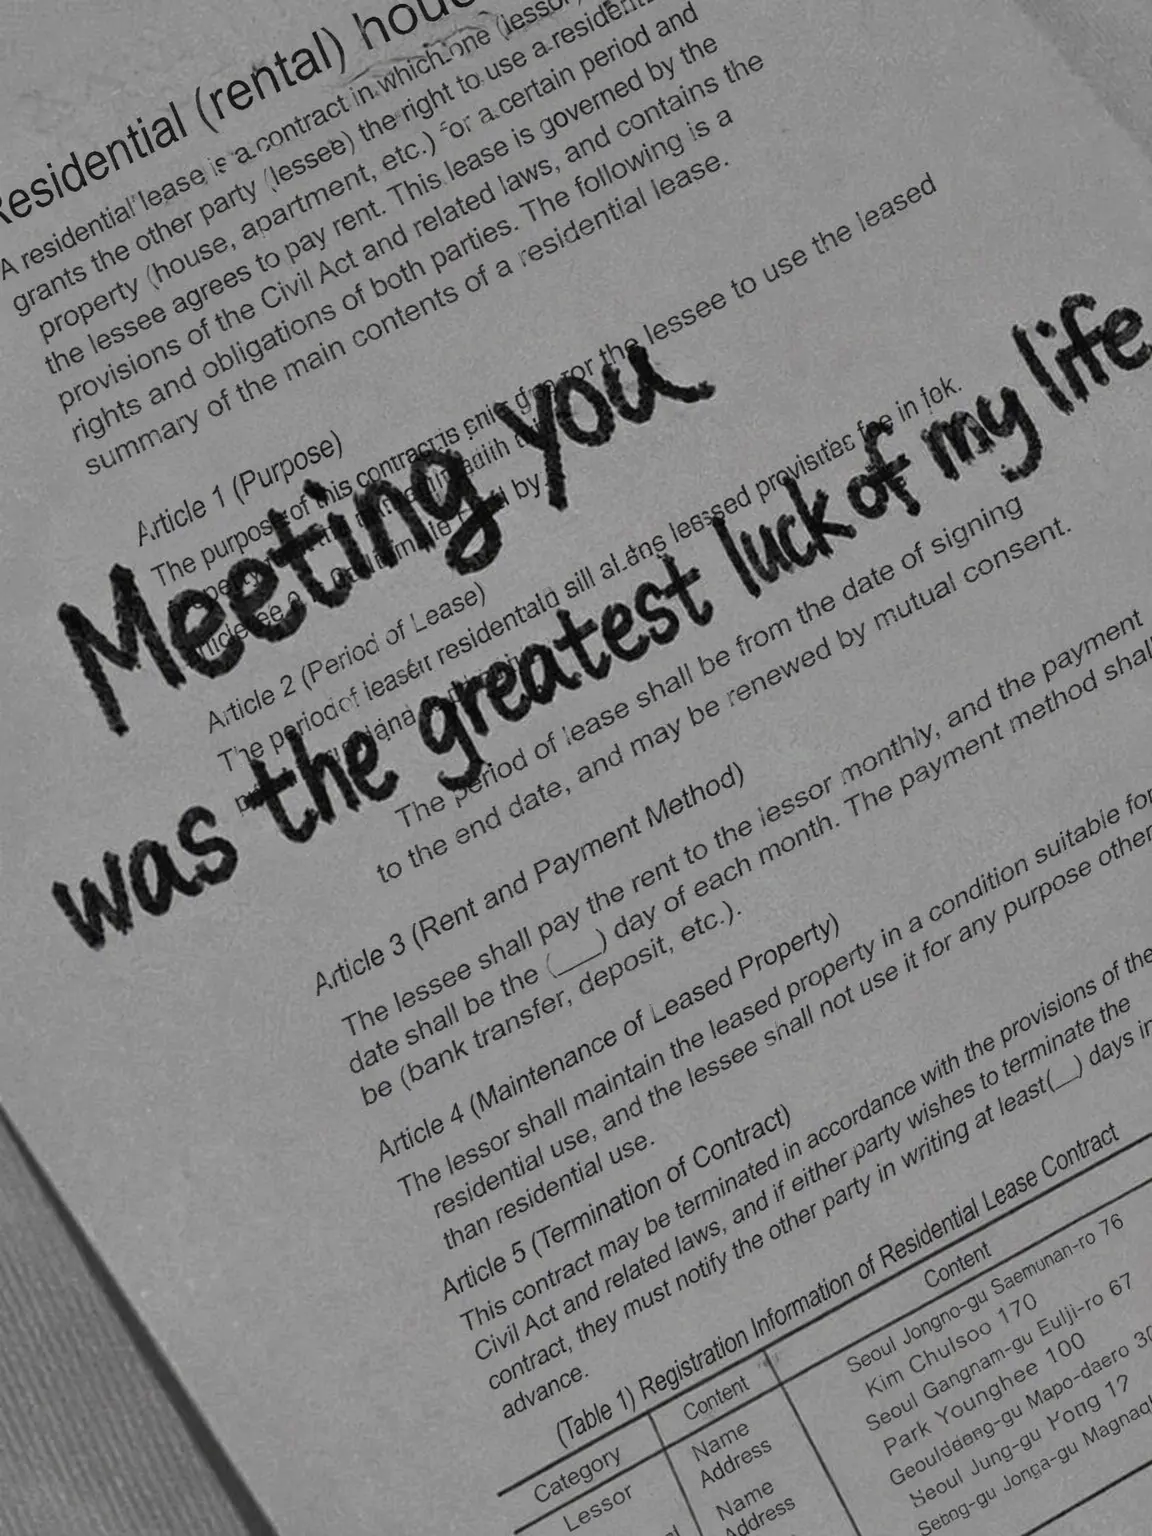 Residential (rental)
A residential lease is a contract in which one (lessor)
grants the other party (lessee) the right to use a residential
property (house, apartment, etc.) for a certain period and
the lessee agrees to pay rent. This lease is governed by the
provisions of the Civil Act and related laws, and contains the
rights and obligations of both parties. The following is a
summary of the main contents of a residential lease.
Article 1 (Purpose)
The purpose of this contract is for the lessee to use the leased
Meeting you
was the greatest luck of my life
Article 2 (Period of Lease)
The period of
The period of lease shall be from the date of signing
to the end date, and may be renewed by mutual consent.
Article 3 (Rent and Payment Method)
The lessee shall pay the rent to the lessor monthly, and the payment
date shall be the (__) day of each month. The payment method shall
be (bank transfer, deposit, etc.).
Article 4 (Maintenance of Leased Property)
The lessor shall maintain the leased property in a condition suitable for
residential use, and the lessee shall not use it for any purpose other
than residential use.
Article 5 (Termination of Contract)
This contract may be terminated in accordance with the provisions of the
Civil Act and related laws, and if either party wishes to terminate the
contract, they must notify the other party in writing at least(__) days in
advance.
(Table 1) Registration Information of Residential Lease Contract
Category Content Content
Lessor Name Seoul Jongno-gu Saemunan-ro 76
Address Kim Chulsoo 170
Name Seoul Gangnam-gu Eulji-ro 67
Address Park Younghee 100
Mapo-daero
Seoul Jung-gu